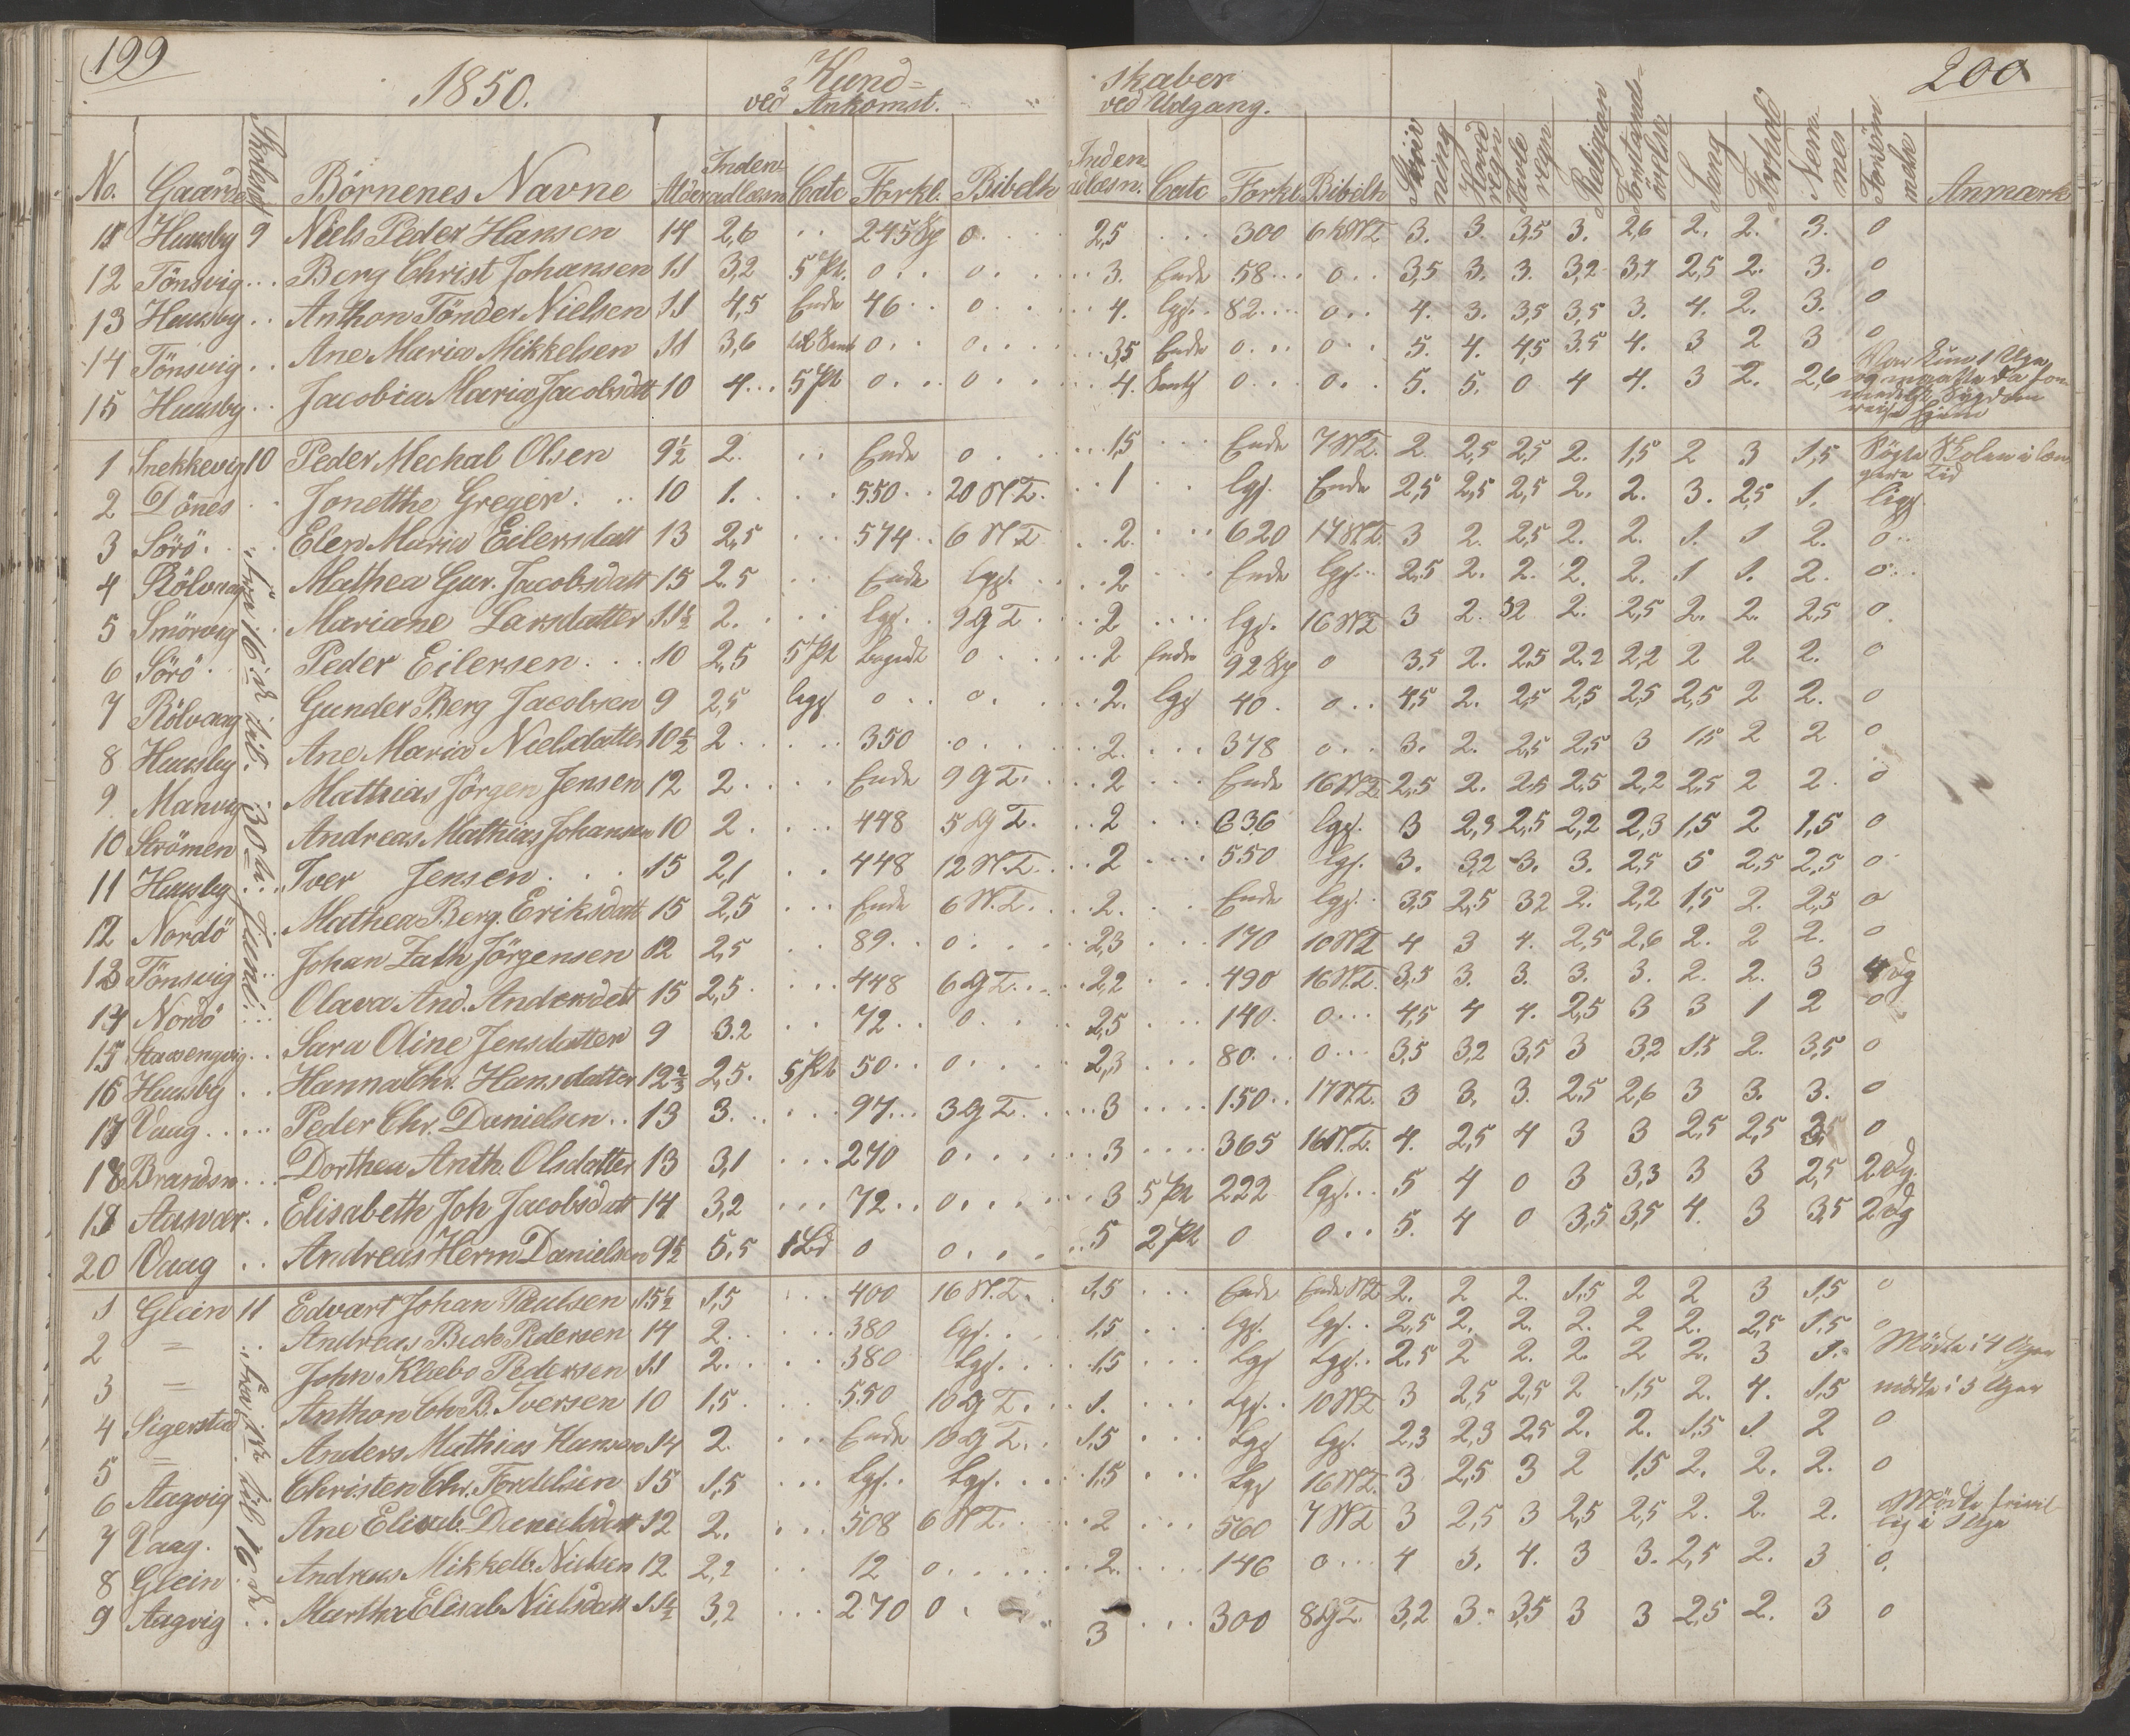 199
1850.
Kund=
ved Ankomst.
skaber
ved Udgang.
200
No. Gaarde Skolest Börnenes Navne Alder Inden adlæsn Catc Forkl. Bibelh Inden adlæsn. Catc Forkl Bibelh Skriv ning Hoved regn Tavle regn Religion Forstands övelse Sang Forhold Nem mes Forsöm melse Anmærk
11 Huusby 9 Niels Peder Hansen 14 2,6 .. 245 Sp 0. 2,5 ... 300 6 k NT 3. 3. 3,5 3. 2,6 2. 2. 3. 0
12 Tönsvig... Berg Christ Johansen 11 3,2 5 Pt. 0.. 0.. 3. Ende 58... 0.. 3,5 3. 3. 3,2 3,4 2,5 2. 3. 0
13 Huusby.. Anthon Tönder Nielsen 11 4,5 Ende 46.. 0.. 4. lgs.. 82.... 0.. 4. 3. 3,5 3,5 3. 4. 2. 3. 0
14 Tönsvig.. Ane Maria Mikkelsen 11 3,6 0.. 0.. 3,5 Ende 0... 0.. 5. 4. 4,5 3.5 4. 3 2 3 0
15 Huusby.. Jacobia Maria Jacobsdtt 10 4... 5 Pt 0... 0.. 4. 0... 0.. 5. 5. 0 4 4. 3 2. 2,6 Var kun 1 Uge og maatte da for medelst Sygdom reise hjem
1 Snekkevig 10 Peder Mechal Olsen 9½ 2. .. Ende 0. 1,5 ... Ende 7 NT. 2. 2,5 2,5 2. 1,5 2 3 1,5 Sögte Skolen i læn gere Tid
2 Dönnes.. Jonetthe Greger. .. 10 1. ... 550.. 20 NT. 1 .. lgs. Ende 2,5 2,5 2,5 2. 2. 3. 2,5 1. ligs.
3 Sörö. .. Elen Maria Eilersdatt 13 2,5 ... 574.. 6 NT 2. ... 620 17 NT. 3 2. 2,5 2. 2. 1. 1 2. 0..
4 Rölvaag Mathea Gur. Jacobsdatt 15 2.5 .. Ende lgs. 2 ... Ende lgs... 2,5 2. 2. 2. 2. 1 1. 2. 0..
5 Smörvig Mariane Larsdatter 11½ 2. ... lgs.. 9 GT. 2 .... lgs. 16 NT 3 2. 32 2. 2,5 2. 2. 2,5 0.
6 Sörö. Peder Eilersen... 10 2,5 5 Pt 0.. 2 Ende 92 Sp 0 3,5 2. 2,5 2.2 2,2 2 2 2. 0
7 Rölvaag Gunder Berg Jacobsen 9 2,5 lgs 0.. 0. 2. lgs 40. 0.. 4,5 2. 2,5 2,5 2,5 2,5 2 2. 0
8 Huusby. Ane Maria Nielsdatter 10½ 2.... 350 0.. 2. ... 378 0.. 3. 2. 2,5 2,5 3 1,5 2 2 0
9 Manvig Mathias Jörgen Jensen 12 2.... Ende 9 GT. 2 ... Ende 16 NT. 2,5 2. 2,5 2,5 2,2 2,5 2 2. 0
10 Strömen Andreas Mathias Johansen 10 2. ... 448 5 GT. 2 ... 636 lgs. 3 2,3 2,5 2,2 2,3 1,5 2 1,5 0
11 Huusby Iver Jensen... 15 2,1 .. 448 12 NT. 2 .... 550 lgs. 3. 3,2 3. 3. 2,5 5 2,5 2,5 0
12 Nordö Mathea Berg. Eriksdatt 15 2,5 ... Ende 6 N.T. 2. .. Ende lgs.. 3,5 2,5 32 2. 2,2 1,5 2. 2,5 0
13 Tönsvig Johan Zath Jörgensen 12 2,5 .. 89.. 0.... 2,3 ... 170 10 NT 4 3 4. 2,5 2,6 2. 2 2. 0
14 Nordö Olava And. Andersdatt 15 2,5. ... 448 6 GT... 2,2 .. 490 16 N.T. 3,5 3. 3. 3. 3. 2. 2. 3 4 dg
15 Stavsengvig.. Sara Oline Jensdatter 9 3.2 .. 72.. 0... 2,5 ... 140. 0... 4,5 4 4. 2,5 3 3 1 2 0
16 Huusby.. Hanna Chr. Hansdatter 12½ 2,5. 5 Pt 50.. 0... 2,3 ... 80... 0... 3,5 3,2 3,5 3 3,2 1,5 2. 3,5 0
17 Vaag..... Peder Chr. Danielsen.. 13 3.... 97... 3 GT. 3 .... 150.. 17 NT. 3 3. 3. 2,5 2,6 3 3. 3. 0
18 Brandsn... Dorthea Anth. Olsdatter 13 3,1 ... 270 0.... 3 .... 365 16 N.T. 4. 2,5 4 3 3 2,5 2,5 3,5 0
19 Aasvær.. Elisabeth Joh Jacobsdatt 14 3,2 ... 72.. 0.... 3 5 Pt 222 lgs... 5 4 0 3 3,3 3 3 2,5 2 Dg.
20 Vaag .. Andreas Herm Danielsen 9½ 5,5 1 Bd 0 0.... 5 2 Pt 0 0.. 5. 4 0 3,5 3,5 4. 3 3,5 2 dg
fra 16de til 30te Juni.
1 Glein 11 Edvart Johan Paulsen 15½ 1,5 ... 400 16 N.T. 1,5 ... Ende Ende NT. 2. 2 2. 1,5 2 2 3 1,5 0
2 = .. Andreas Beck Pedersen 14 2. .... 380 lgs... 1,5 ... lgs. lgs.. 2,5 2. 2. 2. 2 2. 2,5 1,5 0
3 = John Klæbo Pedersen 11 2.... 380 lgs... 1,5 lgs lgs.. 2.5 2 2. 2. 2 2. 3 1. Mödte i 4 Uger
4 Sigerstad Anthon Chr. B. Iversen 10 1,5. ... 550 10 GT. 1. ... lgs.. 10 NT 3 2,5 2,5 2 1,5 2. 4. 1,5 mödte i 3 Uger
5 = Anders Mathias Hansen 14 2. ... Ende 10 GT. 1,5 ... lgs lgs. 2,3 2,3 2,5 2. 2. 1,5 1. 2 0
6 Aagvig Christen Chr. Fordelsen 15 1,5 ... lgs.. lgs... 1,5 ... lgs 16 NT. 3 2,5 3 2 1,5 2. 2. 2. 0
7 Vaag. Ane Elisab. Danielsdatt 12 2. ... 508 6 NT.. 2 ... 560 7 NT 3 2,5 3 2,5 2,5 2. 2. 2. Mödte frivil lig i 1 Uge
8 Glein. Andreas Mikkelb. Nielsen 12 2,2 .. 12 0.... 2. .... 146 0... 4 3. 4. 3 3. 2,5 2. 3 0.
9 Aagvig.. Martha Elisab Nielsdatt 11½ 3,2 ... 270 0. 3 ... 300 8 GT. 3,2 3. 3,5 3 3 2,5 2. 3 0
fra 1ste til 16de